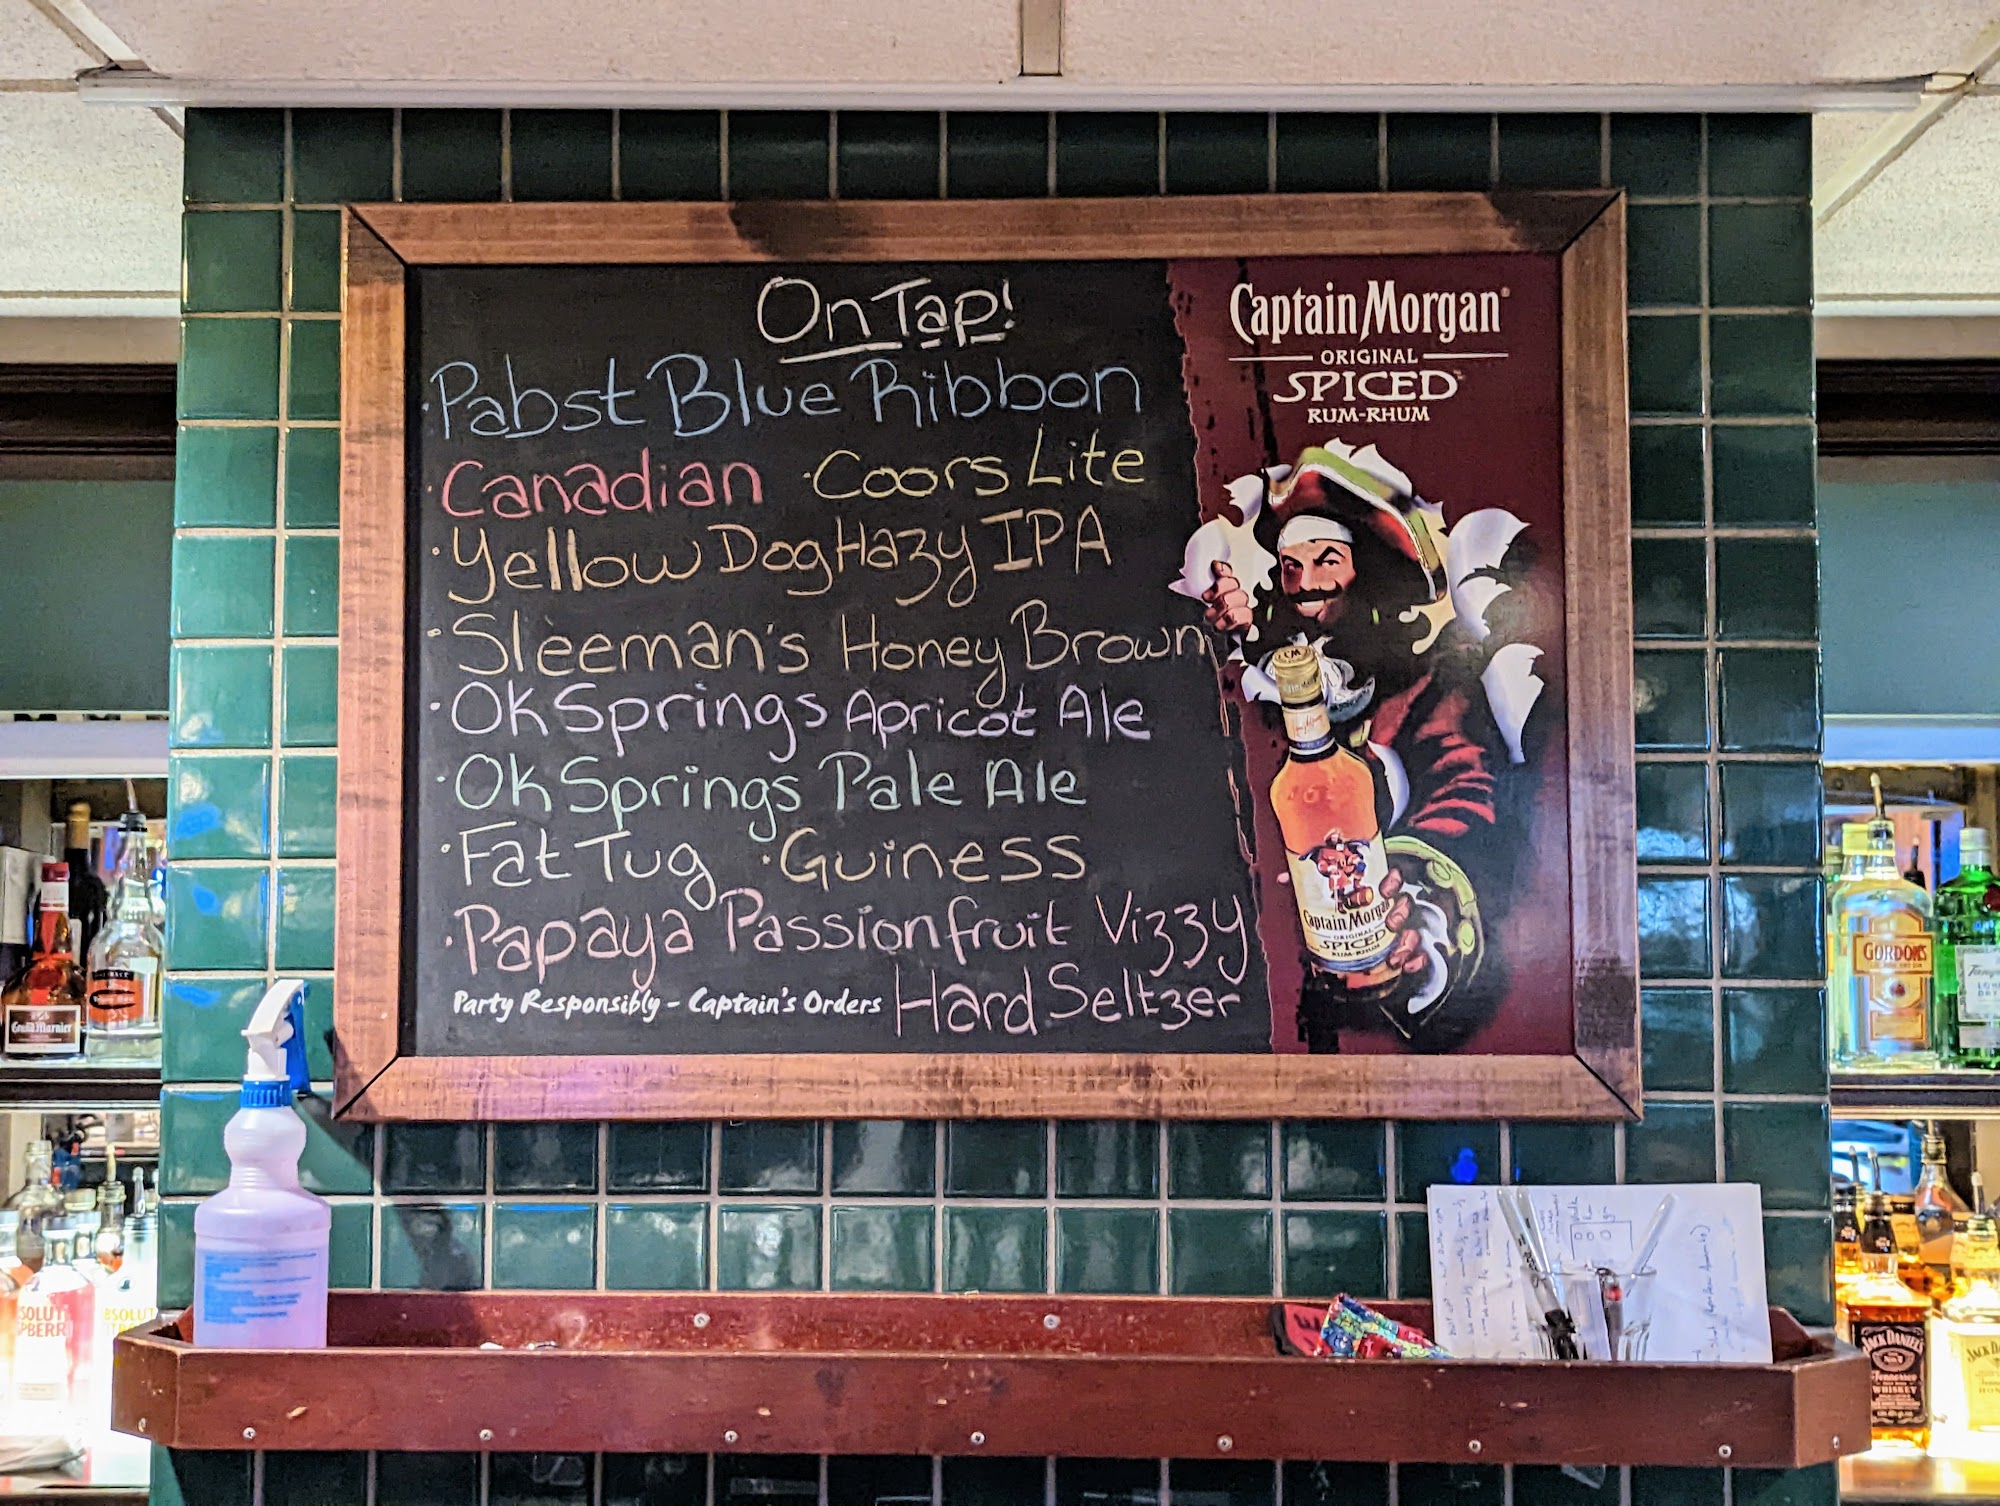 On Tap!
· Pabst Blue Ribbon
· Canadian · Coors Lite
· Yellow Dog Hazy IPA
· Sleeman's Honey Brown
· OK Springs Apricot Ale
· OK Springs Pale Ale
· Fat Tug · Guiness
· Papaya Passionfruit Vizzy
Hard Seltzer
Party Responsibly - Captain's Orders
Captain Morgan
ORIGINAL
SPICED
RUM-RHUM
Captain Morgan
ORIGINAL
SPICED
RUM-RHUM
Grand Marnier
GORDON'S
JACK DANIEL'S
Tennessee
WHISKEY